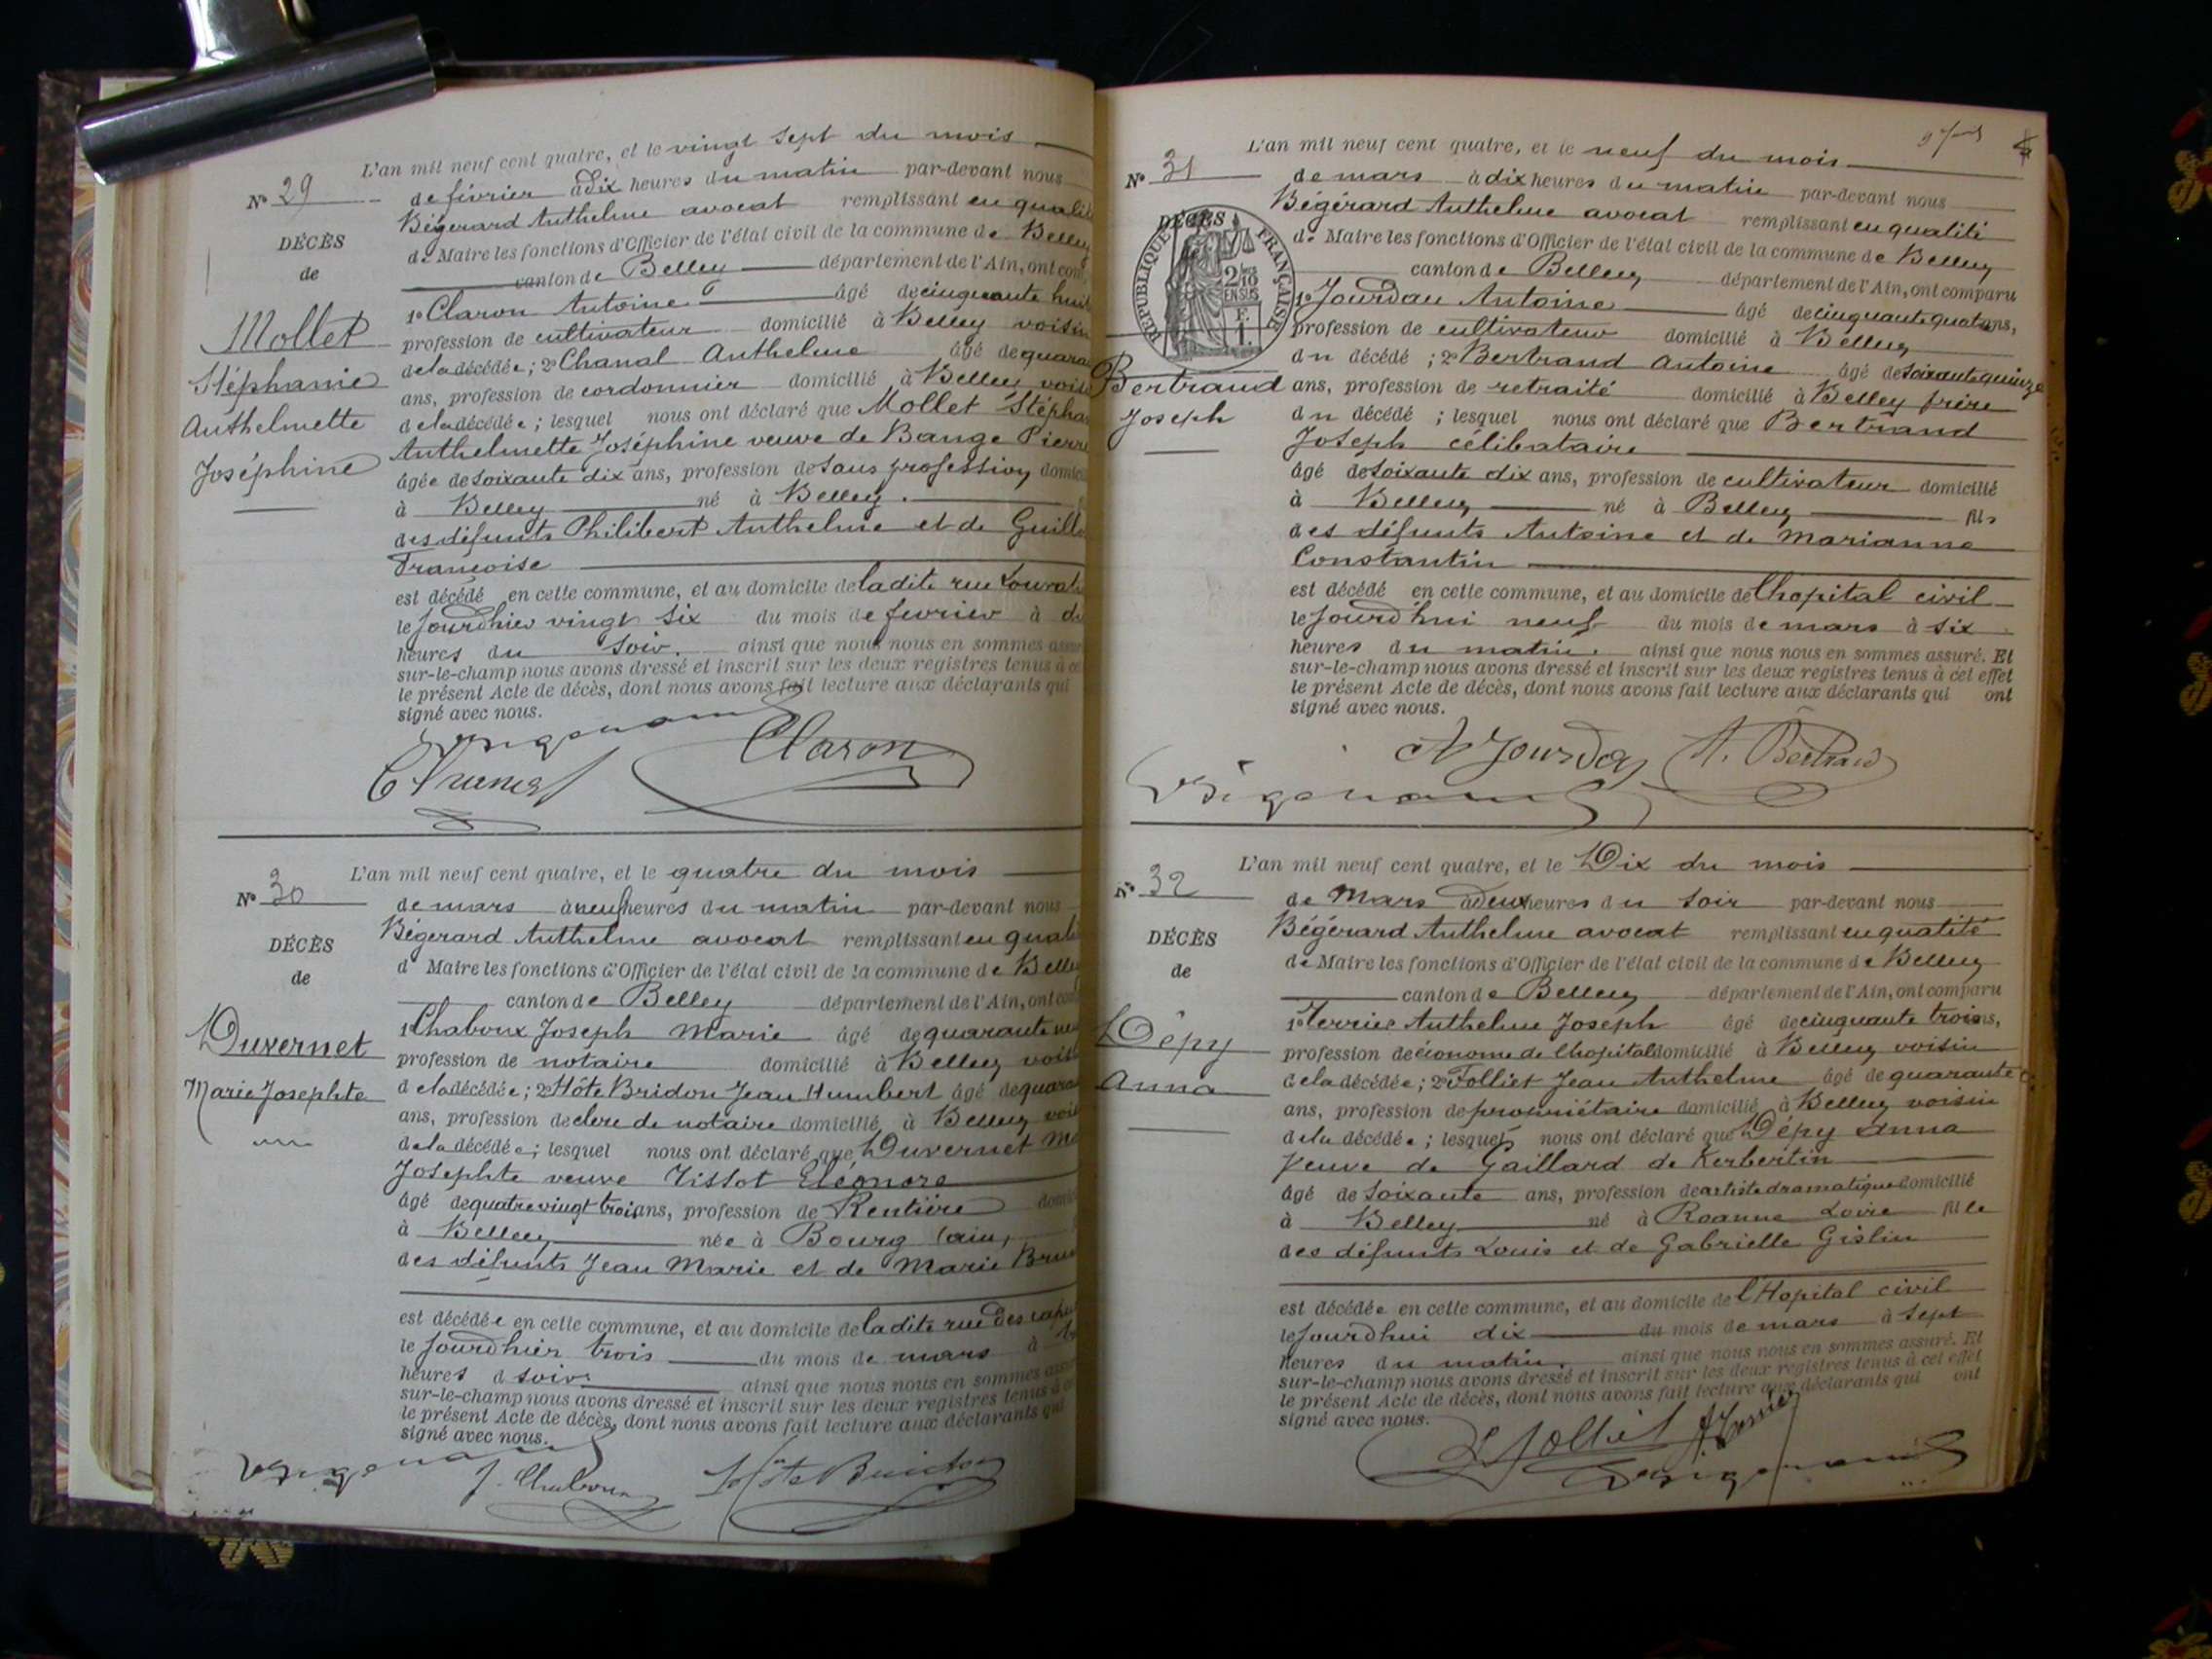 L'an mil neuf cent quatre, et le vingt sept du mois
N° 29
de février à dix heures du matin par-devant nous
Bégérard Anthelme avocat remplissant en qualité
DÉCÈS
de Maire les fonctions d'Officier de l'état civil de la commune de Belley
de
canton de Belley département de l'Ain, ont com
1° Claron Antoine âgé de cinquante huit
Mollet
profession de cultivateur domicilié à Belley voisin
Stéphanie
de la décédée; 2° Chanal Anthelme âgé de quara
ans, profession de cordonnier domicilié à Belley vois
Anthelmette
de la décédée; lesquel nous ont déclaré que Mollet Stépha
Joséphine
Anthelmette Joséphine veuve de Bange Pierre
âgée de soixante dix ans, profession de sans profession domici
à Belley né à Belley.
des défunts Philibert Anthelme et de Guill
Françoise
est décédé en cette commune, et au domicile de ladite rue
le jourd'hier vingt six du mois de fevrier à
heures du soir. ainsi que nous nous en sommes assu
sur-le-champ nous avons dressé et inscrit sur les deux registres tenus à ce
le présent Acte de décès, dont nous avons fait lecture aux déclarants qui
signé avec nous.
Claron
L'an mil neuf cent quatre, et le quatre du mois
N° 30
de mars à neuf heures du matin par-devant nous
Bégerard Anthelme avocat remplissant en quali
DÉCÈS
d Maire les fonctions d'Officier de l'état civil de la commune de Belley
de
canton de Belley département de l'Ain, ont com
1° Chaboux Joseph Marie âgé de quarante
Duvernet
profession de notaire domicilié à Belley vois
Marie Josephte
de la décédée; 2° Hôte Bridon Jean Humbert âgé de quara
ans, profession de clerc de notaire domicilié à Belley voi
de la décédée; lesquel nous ont déclaré que Duvernet Ma
Josephte veuve Tissot Eléonore
âgé de quatre vingt trois ans, profession de Rentière domici
à Belley née à Bourg (ain)
des défunts Jean Marie et de Marie Bru
est décédée en cette commune, et au domicile de ladite rue des capu
le jourd'hier trois du mois de mars à
heures d soir. ainsi que nous nous en sommes assu
sur-le-champ nous avons dressé et inscrit sur les deux registres tenus à ce
le présent Acte de décès, dont nous avons fait lecture aux déclarants qui
signé avec nous.
J. Chaboux Hôte Bridon
L'an mil neuf cent quatre, et le neuf du mois
N° 31
de mars à dix heures du matin par-devant nous
Bégérard Anthelme avocat remplissant en qualité
DÉCÈS
de Maire les fonctions d'Officier de l'état civil de la commune de Belley
RÉPUBLIQUE FRANÇAISE
canton de Belley département de l'Ain, ont comparu
2/10 EN SUS
1° Jourdan Antoine âgé de cinquante quatre ans,
F. 1.
profession de cultivateur domicilié à Belley
du décédé; 2° Bertrand Antoine âgé de soixante quinze
Bertrand
ans, profession de retraité domicilié à Belley frère
Joseph
du décédé; lesquel nous ont déclaré que Bertrand
Joseph célibataire
âgé de soixante dix ans, profession de cultivateur domicilié
à Belley né à Belley fils
des défunts Antoine et de Marianne
Constantin
est décédé en cette commune, et au domicile de l'hopital civil
le jourd'hui neuf du mois de mars à six
heures du matin. ainsi que nous nous en sommes assuré. Et
sur-le-champ nous avons dressé et inscrit sur les deux registres tenus à cet effet
le présent Acte de décès, dont nous avons fait lecture aux déclarants qui ont
signé avec nous.
A Jourdan A. Bertrand
L'an mil neuf cent quatre, et le Dix du mois
N° 32
de Mars à Deux heures du soir par-devant nous
Bégérard Anthelme avocat remplissant en qualité
DÉCÈS
de Maire les fonctions d'Officier de l'état civil de la commune de Belley
de
canton de Belley département de l'Ain, ont comparu
1° Ferrier Anthelme Joseph âgé de cinquante trois ans,
Dépy
profession de économe de l'hopital domicilié à Belley voisin
Anna
de la décédée; 2° Folliet Jean Anthelme âgé de quarante
ans, profession de propriétaire domicilié à Belley voisin
de la décédée; lesquels nous ont déclaré que Dépy Anna
Veuve de Gaillard de Kerbertin
âgé de soixante ans, profession de artiste dramatique domicilié
à Belley né à Roanne Loire fille
des défunts Louis et de Gabrielle Gislin
est décédée en cette commune, et au domicile de l'Hopital civil
le jourd'hui dix du mois de mars à sept
heures du matin. ainsi que nous nous en sommes assuré. Et
sur-le-champ nous avons dressé et inscrit sur les deux registres tenus à cet effet
le présent Acte de décès, dont nous avons fait lecture aux déclarants qui ont
signé avec nous.
Folliet